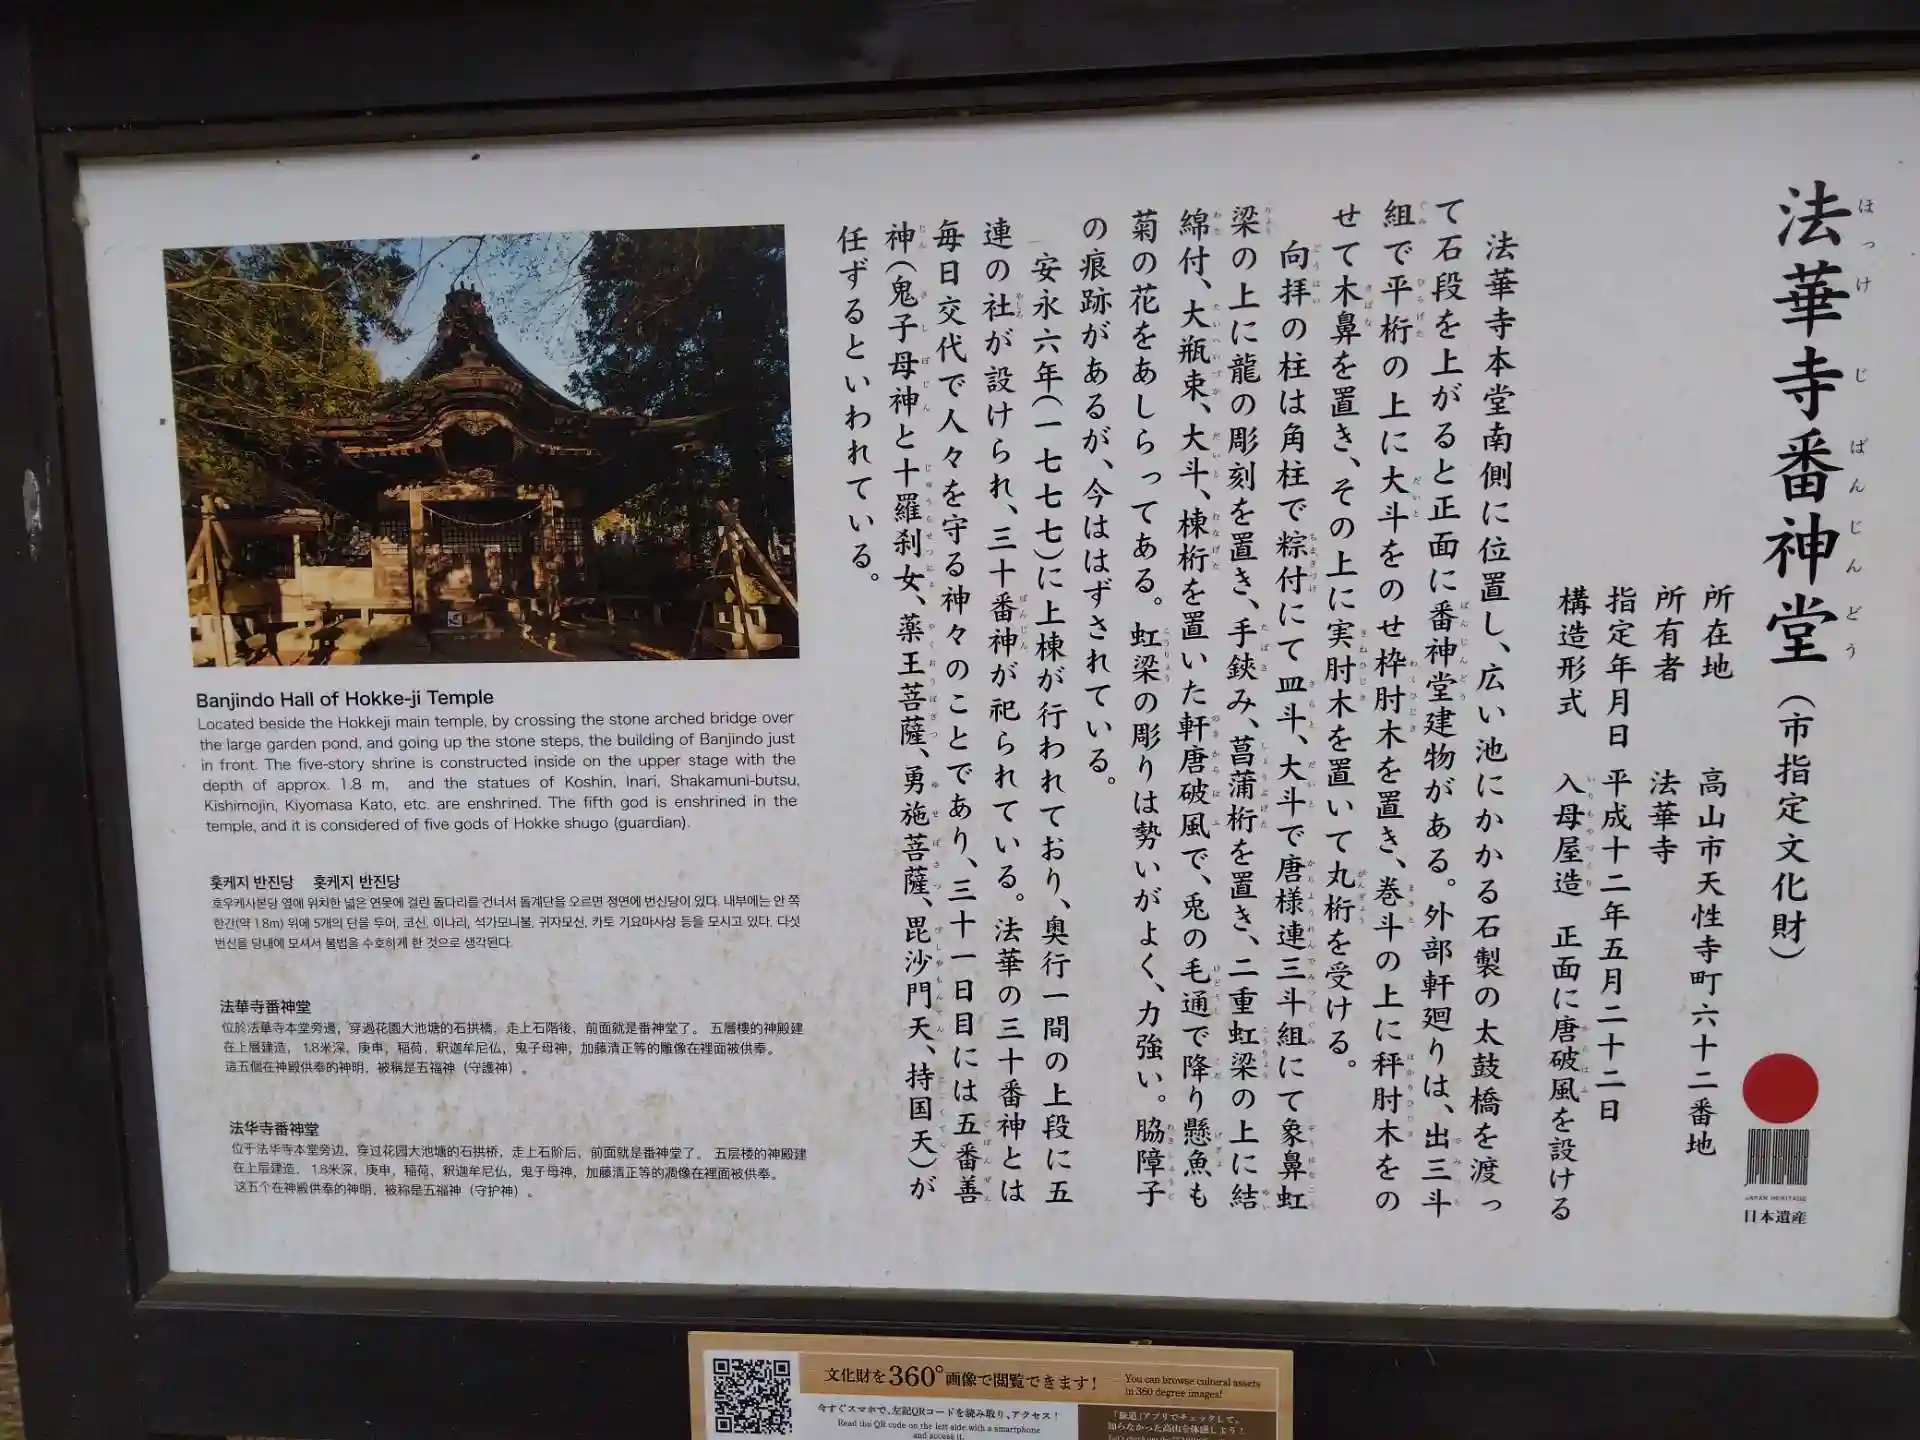 法華寺番神堂（市指定文化財）
所在地　高山市天性寺町六十二番地
所有者　法華寺
指定年月日　平成十二年五月二十二日
構造形式　入母屋造　正面に唐破風を設ける
法華寺本堂南側に位置し、広い池にかかる石製の太鼓橋を渡っ
て石段を上がると正面に番神堂建物がある。外部軒廻りは、出三斗
組で平桁の上に大斗をのせ枠肘木を置き、巻斗の上に秤肘木をの
せて木鼻を置き、その上に実肘木を置いて丸桁を受ける。
向拝の柱は角柱で粽付にて皿斗、大斗で唐様連三斗組にて象鼻虹
梁の上に龍の彫刻を置き、手鋏み、菖蒲桁を置き、二重虹梁の上に結
綿付、大瓶束、大斗、棟桁を置いた軒唐破風で、兎の毛通で降り懸魚も
菊の花をあしらってある。虹梁の彫りは勢いがよく、力強い。脇障子
の痕跡があるが、今ははずされている。
安永六年（一七七七）に上棟が行われており、奥行一間の上段に五
連の社が設けられ、三十番神が祀られている。法華の三十番神とは
毎日交代で人々を守る神々のことであり、三十一日目には五番善
神（鬼子母神と十羅刹女、薬王菩薩、勇施菩薩、毘沙門天、持国天）が
任ずるといわれている。
JAPAN HERITAGE
日本遺産
Banjindo Hall of Hokke-ji Temple
Located beside the Hokkeji main temple, by crossing the stone arched bridge over
the large garden pond, and going up the stone steps, the building of Banjindo just
in front. The five-story shrine is constructed inside on the upper stage with the
depth of approx. 1.8 m, and the statues of Koshin, Inari, Shakamuni-butsu,
Kishimojin, Kiyomasa Kato, etc. are enshrined. The fifth god is enshrined in the
temple, and it is considered of five gods of Hokke shugo (guardian).
홋케지 반진당　홋케지 반진당
호우케사본당 옆에 위치한 넓은 연못에 걸린 돌다리를 건너서 돌계단을 오르면 정면에 번신당이 있다. 내부에는 안 쪽
한간(약 1.8m) 위에 5개의 단을 두어, 코신, 이나리, 석가모니불, 귀자모신, 카토 기요마사상 등을 모시고 있다. 다섯
번신을 당내에 모셔서 불법을 수호하게 한 것으로 생각된다.
法華寺番神堂
位於法華寺本堂旁邊，穿過花園大池塘的石拱橋，走上石階後，前面就是番神堂了。 五層樓的神殿建
在上層建造， 1.8米深，庚申，稲荷，釈迦牟尼仏，鬼子母神，加藤清正等的雕像在裡面被供奉。
這五個在神殿供奉的神明，被稱是五福神（守護神）。
法华寺番神堂
位于法华寺本堂旁边，穿过花园大池塘的石拱桥，走上石阶后，前面就是番神堂了。 五层楼的神殿建
在上层建造， 1.8米深，庚申，稲荷，釈迦牟尼仏，鬼子母神，加藤清正等的凋像在裡面被供奉。
这五个在神殿供奉的神明，被称是五福神（守护神）。
文化財を360°画像で閲覧できます！
You can browse cultural assets
in 360 degree images!
今すぐスマホで、左記QRコードを読み取り、アクセス！
Read the QR code on the left side with a smartphone
and access it.
アプリでチェックして、
知らなかった高山を体感しよう！